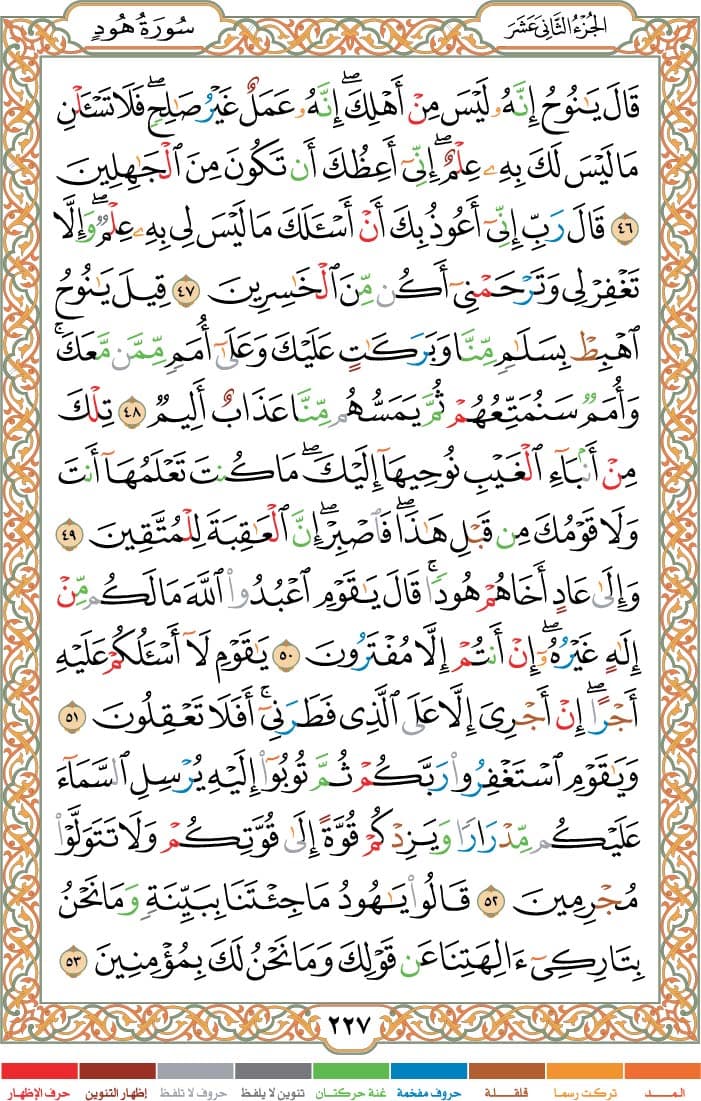 الجُزْءُ الثَّانِي عَشَرَ
سُورَةُ هُودٍ
قَالَ يَٰنُوحُ إِنَّهُۥ لَيْسَ مِنْ أَهْلِكَ ۖ إِنَّهُۥ عَمَلٌ غَيْرُ صَٰلِحٍ ۖ فَلَا تَسْـَٔلْنِ
مَا لَيْسَ لَكَ بِهِۦ عِلْمٌ ۖ إِنِّىٓ أَعِظُكَ أَن تَكُونَ مِنَ ٱلْجَٰهِلِينَ
٤٦ قَالَ رَبِّ إِنِّىٓ أَعُوذُ بِكَ أَنْ أَسْـَٔلَكَ مَا لَيْسَ لِى بِهِۦ عِلْمٌ ۖ وَإِلَّا
تَغْفِرْ لِى وَتَرْحَمْنِىٓ أَكُن مِّنَ ٱلْخَٰسِرِينَ ٤٧ قِيلَ يَٰنُوحُ
ٱهْبِطْ بِسَلَٰمٍ مِّنَّا وَبَرَكَٰتٍ عَلَيْكَ وَعَلَىٰٓ أُمَمٍ مِّمَّن مَّعَكَ ۚ
وَأُمَمٌ سَنُمَتِّعُهُمْ ثُمَّ يَمَسُّهُم مِّنَّا عَذَابٌ أَلِيمٌ ٤٨ تِلْكَ
مِنْ أَنۢبَآءِ ٱلْغَيْبِ نُوحِيهَآ إِلَيْكَ ۖ مَا كُنتَ تَعْلَمُهَآ أَنتَ
وَلَا قَوْمُكَ مِن قَبْلِ هَٰذَا ۖ فَٱصْبِرْ ۖ إِنَّ ٱلْعَٰقِبَةَ لِلْمُتَّقِينَ ٤٩
وَإِلَىٰ عَادٍ أَخَاهُمْ هُودًا ۚ قَالَ يَٰقَوْمِ ٱعْبُدُوا۟ ٱللَّهَ مَا لَكُم مِّنْ
إِلَٰهٍ غَيْرُهُۥٓ ۖ إِنْ أَنتُمْ إِلَّا مُفْتَرُونَ ٥٠ يَٰقَوْمِ لَآ أَسْـَٔلُكُمْ عَلَيْهِ
أَجْرًا ۖ إِنْ أَجْرِىَ إِلَّا عَلَى ٱلَّذِى فَطَرَنِىٓ ۚ أَفَلَا تَعْقِلُونَ ٥١
وَيَٰقَوْمِ ٱسْتَغْفِرُوا۟ رَبَّكُمْ ثُمَّ تُوبُوٓا۟ إِلَيْهِ يُرْسِلِ ٱلسَّمَآءَ
عَلَيْكُم مِّدْرَارًا وَيَزِدْكُمْ قُوَّةً إِلَىٰ قُوَّتِكُمْ وَلَا تَتَوَلَّوْا۟
مُجْرِمِينَ ٥٢ قَالُوا۟ يَٰهُودُ مَا جِئْتَنَا بِبَيِّنَةٍ وَمَا نَحْنُ
بِتَارِكِىٓ ءَالِهَتِنَا عَن قَوْلِكَ وَمَا نَحْنُ لَكَ بِمُؤْمِنِينَ ٥٣
٢٢٧
المــــد تركت رسما قلقـلة حروف مفخمة غنة حركتـان تنوين لا يلفظ حروف لا تلفظ إظهار التنوين حرف الإظهار